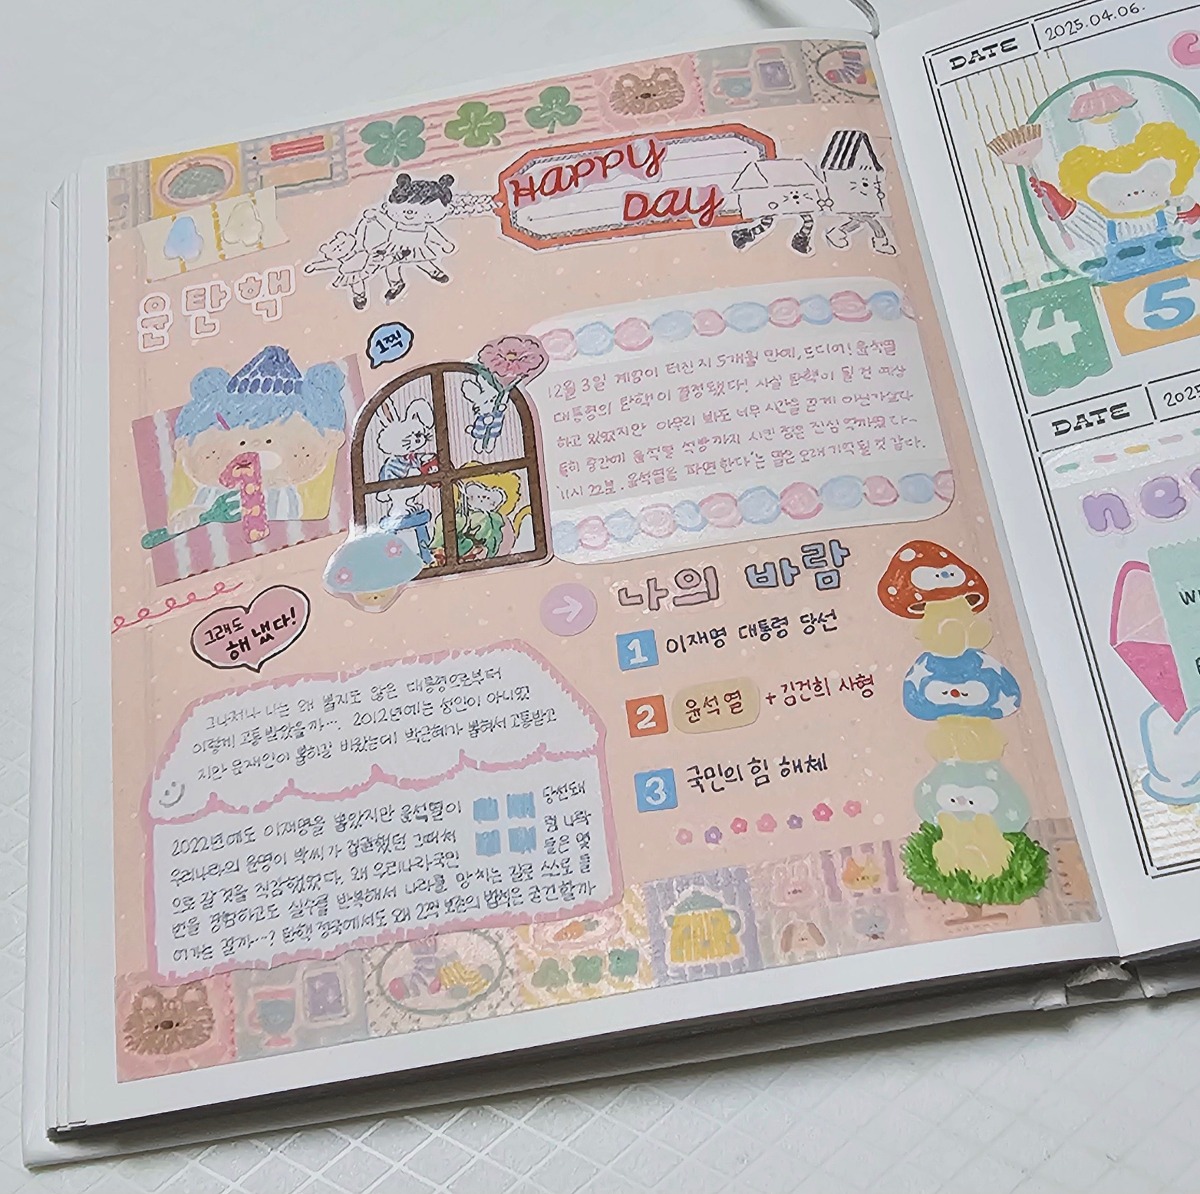 HAPPY
DAY
윤탄핵
1찍
12월 3일 계엄이 터진지 5개월 만에, 드디어! 윤석열
대통령의 탄핵이 결정됐다! 사실 탄핵이 될 건 예상
하고 있었지만 아무리 봐도 너무 시간을 끈게 아닌가싶다
특히 중간에 윤석열 석방까지 시킨 점은 진심
11시 22분. 윤석열을 파면한다'는 말은 오래 기억될 것 같다.
그래도
해냈다!
나의 바람
1 이재명 대통령 당선
2 윤석열 + 김건희 사형
3 국민의힘 해체
그나저나 나는 왜 뽑지도 않은 대통령으로부터
이렇게 고통 받았을까…. 2012년에는 성인이 아니었
지만 문재인이 뽑히길 바랐는데 박근혜가 뽑혀서 고통받고
2022년에도 이재명을 뽑았지만 윤석열이 당선돼
우리나라의 운명이 박씨가 집권했던 그때처럼 나락
으로 갈 것을 직감했었다. 왜 우리나라 국민들은 몇
번을 경험하고도 실수를 반복해서 나라를 망치는 길로 스스로 들
어가는 걸까…? 탄핵 정국에서도 왜 2찍 보존의 법칙은 굳건할까
DATE 2025.04.06.
4
5
DATE 202
ne